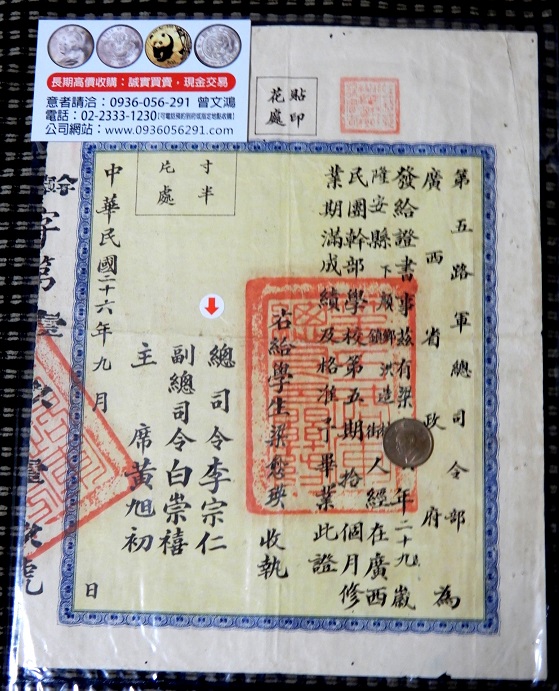 長期高價收購：誠實買賣，現金交易
意者請洽：0936-056-291 曾文鴻
電話：02-2333-1230【可電話預約到府或指定地點收購】
公司網站：www.0936056291.com
貼印
花處
第五路軍總司令部
廣西省政府 為
發給證書事茲有梁 年二十九歲
隆安縣下顏鄉鎮洪造村街人經在廣西
民團幹部學校第五期拾個月修
業期滿成績及格准予畢業此證
右給學生梁 收執
總司令李宗仁
副總司令白崇禧
主席黃旭初
寸半
片處
中華民國二十六年九月 日
幹字第壹 號